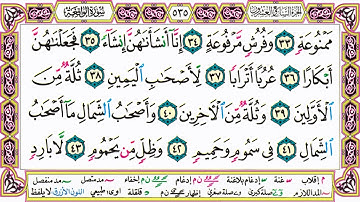 سُورَةُ الْوَاقِعَةِ ٥٣٥ الجزء السابع والعشرون
مَمْنُوعَةٍ ٣٣ وَفُرُشٍ مَّرْفُوعَةٍ ٣٤ إِنَّا أَنشَأْنَاهُنَّ إِنشَاءً ٣٥ فَجَعَلْنَاهُنَّ
أَبْكَارًا ٣٦ عُرُبًا أَتْرَابًا ٣٧ لِّأَصْحَابِ الْيَمِينِ ٣٨ ثُلَّةٌ مِّنَ
الْأَوَّلِينَ ٣٩ وَثُلَّةٌ مِّنَ الْآخِرِينَ ٤٠ وَأَصْحَابُ الشِّمَالِ مَا أَصْحَابُ
الشِّمَالِ ٤١ فِي سَمُومٍ وَحَمِيمٍ ٤٢ وَظِلٍّ مِّن يَحْمُومٍ ٤٣ لَّا بَارِدٍ